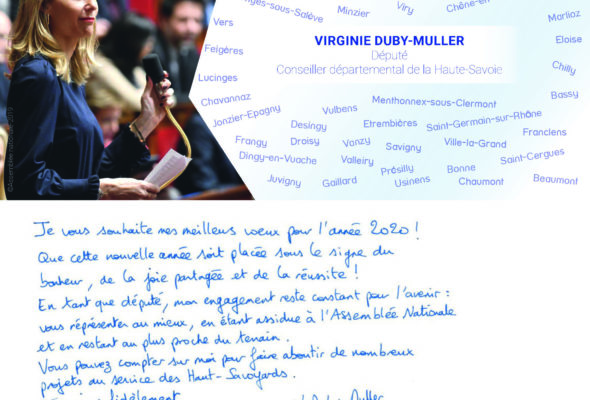 Minzier
Viry
Marlioz
Vers
VIRGINIE DUBY-MULLER
Eloise
Feigères
Député
Conseiller départemental de la Haute-Savoie
Chilly
Lucinges
Chavannaz
Menthonnex-sous-Clermont
Bassy
Jonzier-Epagny
Vulbens
Desingy
Etrembières
Saint-Germain-sur-Rhône
Franclens
Frangy
Droisy
Vanzy
Savigny
Ville-la-Grand
Dingy-en-Vuache
Valleiry
Présilly
Bonne
Saint-Cergues
Juvigny
Gaillard
Usinens
Chaumont
Beaumont
Je vous souhaite mes meilleurs voeux pour l'année 2020 !
Que cette nouvelle année soit placée sous le signe du
bonheur, de la joie partagée et de la réussite !
En tant que député, mon engagement reste constant pour l'avenir :
vous représenter au mieux, en étant assidue à l'Assemblée Nationale
et en restant au plus proche du terrain.
Vous pouvez compter sur moi pour faire aboutir de nombreux
projets au service des Haut-Savoyards.